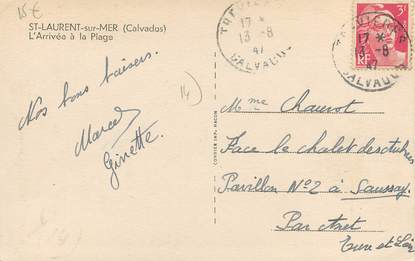 15€
ST-LAURENT-sur-MER (Calvados)
L'Arrivée à la Plage
Nos bons baisers.
Marcel
Ginette
14
TREVIERES
17 *
13 -8
47
CALVADOS
TREVIERES
17 *
13 -8
47
CALVADOS
3F
RF
Mme Chauvot
Face le chalet des
Pavillon No 2 à Saussay
Par Anet
Eure et Loir